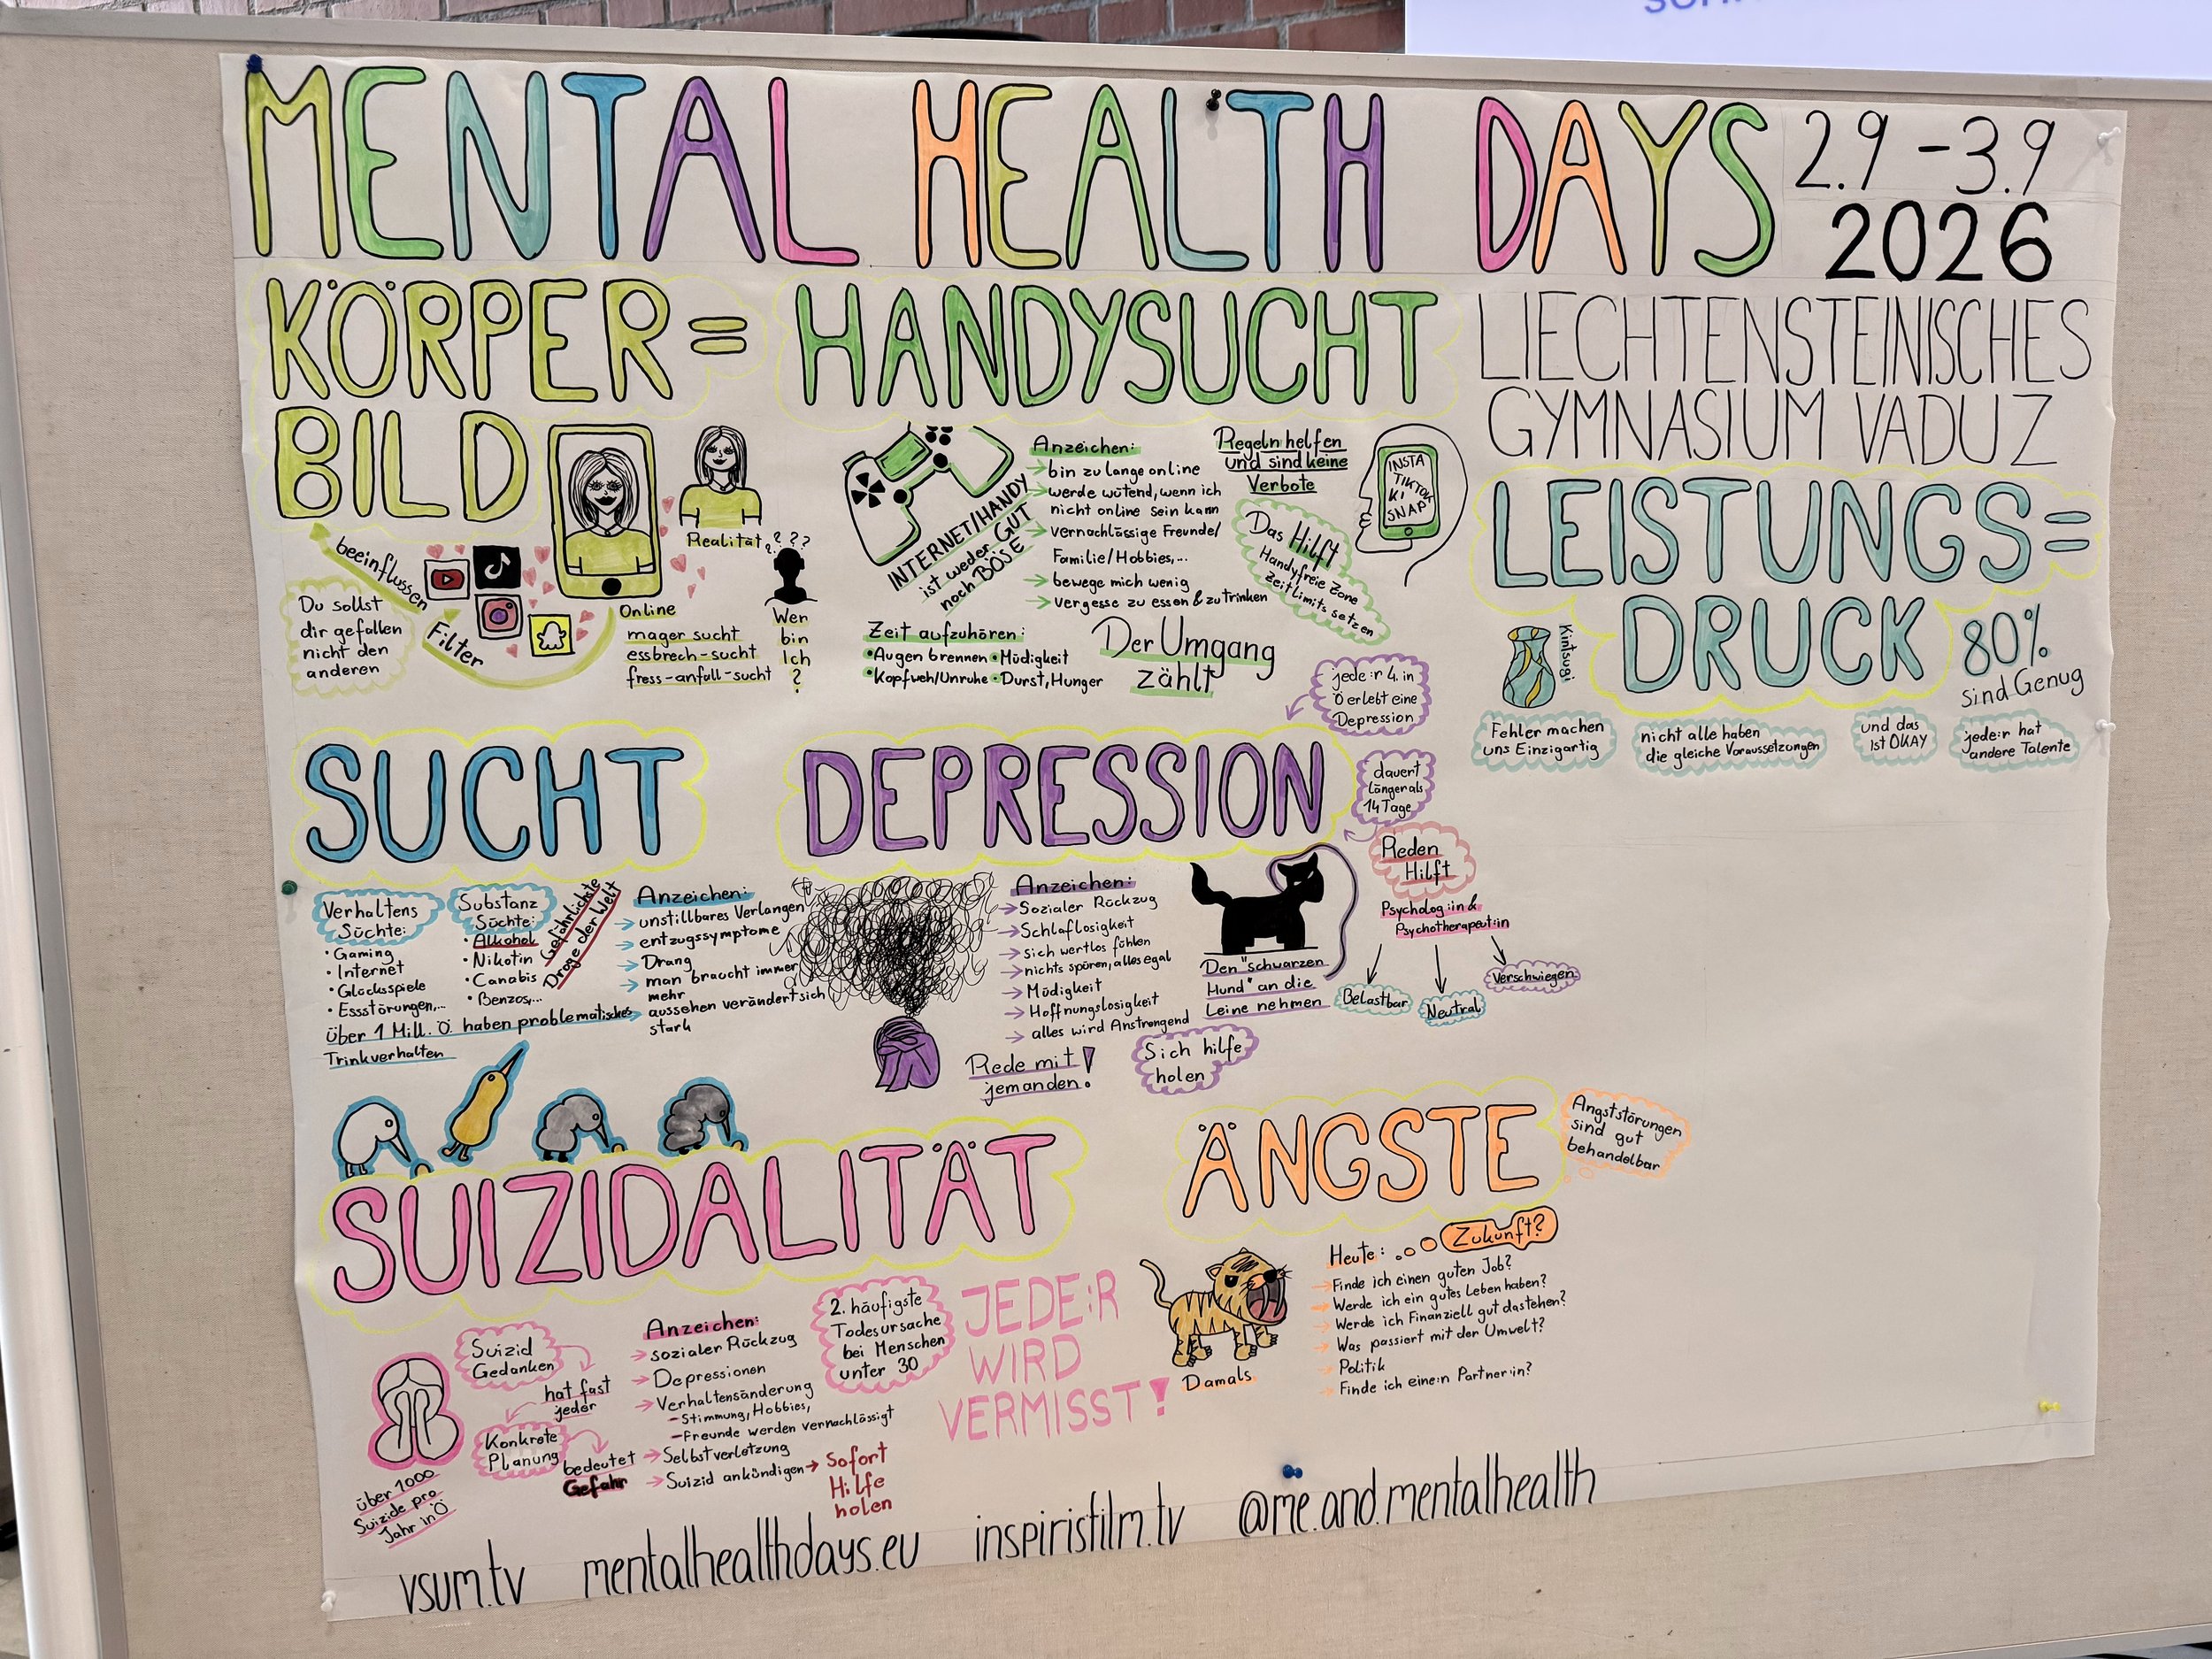 MENTAL HEALTH DAYS
2.9 - 3.9
2026
LIECHTENSTEINISCHES
GYMNASIUM VADUZ
KÖRPER=
BILD
beeinflussen
Filter
Du sollst
dir gefallen
nicht den
anderen
Realität
Online
mager sucht
essbrech-sucht
fress-anfall-sucht
? ? ? ?
Wer
bin
Ich
?
HANDYSUCHT
INTERNET/HANDY
ist weder GUT
noch BÖSE
Anzeichen:
bin zu lange online
werde wütend, wenn ich
nicht online sein kann
vernachlässige Freunde/
Familie/Hobbies,...
bewege mich wenig
vergesse zu essen & zu trinken
Regeln helfen
und sind keine
Verbote
Das Hilft
Handyfreie Zone
Zeitlimits setzen
INSTA
TIKTOK
KI
SNAP
Zeit aufzuhören:
• Augen brennen • Müdigkeit
• Kopfweh/Unruhe • Durst, Hunger
Der Umgang
zählt
LEISTUNGS=
DRUCK
Kintsugi
80%
sind Genug
Fehler machen
uns Einzigartig
nicht alle haben
die gleiche Voraussetzungen
und das
ist OKAY
jede:r hat
andere Talente
SUCHT
Verhaltens
Süchte:
• Gaming
• Internet
• Glücksspiele
• Essstörungen,...
Substanz
Süchte:
• Alkohol
• Nikotin
• Canabis
• Benzos,...
Gefährlichste
Droge der Welt
Anzeichen:
unstillbares Verlangen
entzugssymptome
Drang
man braucht immer
mehr
aussehen verändert sich
stark
über 1 Mill. Ö. haben problematisches
Trinkverhalten
DEPRESSION
jede:r 4. in
Ö erlebt eine
Depression
dauert
Länger als
14 Tage
Anzeichen:
Sozialer Rückzug
Schlaflosigkeit
sich wertlos fühlen
nichts spüren, alles egal
Müdigkeit
Hoffnungslosigkeit
alles wird Anstrengend
Den "schwarzen
Hund" an die
Leine nehmen
Rede mit
jemanden!
Sich hilfe
holen
Reden
Hilft
Psycholog:in &
Psychotherapeut:in
Belastbar
Neutral
Verschwiegen
SUIZIDALITÄT
Suizid
Gedanken
hat fast
jeder
Konkrete
Planung
bedeutet
Gefahr
über 1000
Suizide pro
Jahr in Ö
Anzeichen:
sozialer Rückzug
Depressionen
Verhaltensänderung
- Stimmung, Hobbies,
- Freunde werden vernachlässigt
Selbstverletzung
Suizid ankündigen → Sofort
Hilfe
holen
2. häufigste
Todesursache
bei Menschen
unter 30
JEDE:R
WIRD
VERMISST!
ÄNGSTE
Angststörungen
sind gut
behandelbar
Damals
Heute:
Zukunft?
Finde ich einen guten Job?
Werde ich ein gutes Leben haben?
Werde ich Finanziell gut dastehen?
Was passiert mit der Umwelt?
Politik
Finde ich eine:n Partner:in?
vsum.tv mentalhealthdays.eu inspirisfilm.tv @me.and.mentalhealth